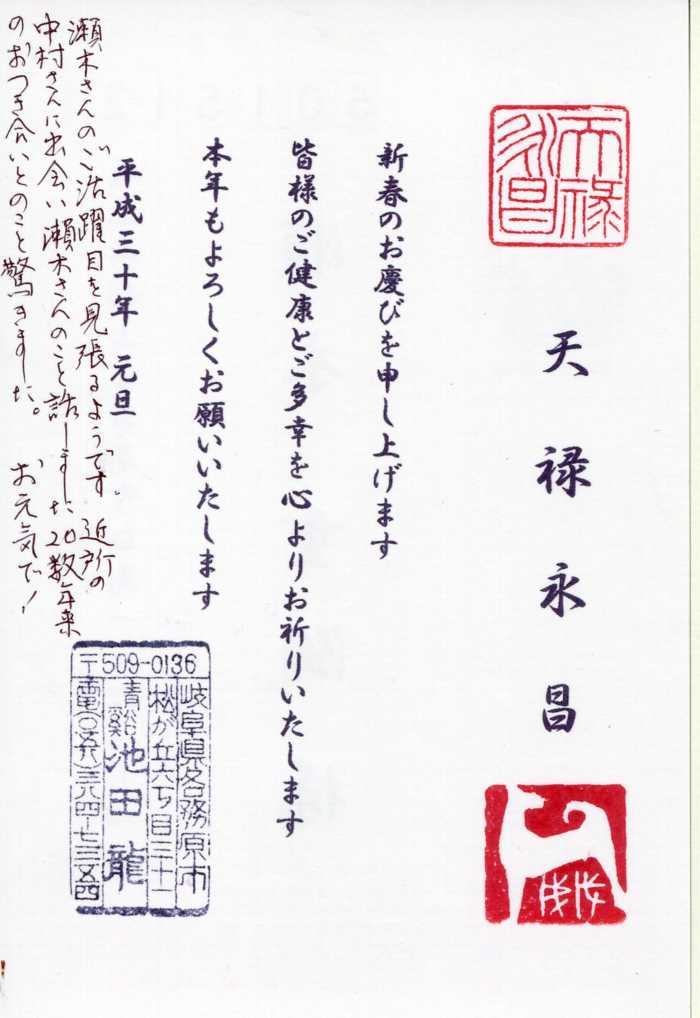 天禄永昌
天禄永昌
新春のお慶びを申し上げます
皆様のご健康とご多幸を心よりお祈りいたします
本年もよろしくお願いいたします
平成三十年 元旦
瀬木さんのご活躍目を見張るようです。近所の
中村さんに出会い瀬木さんのこと話しました20数年来
のおつき合いとのこと驚きました。 お元気で!
〒509-0136
岐阜県各務原市
松が丘六丁目三十一
池田龍